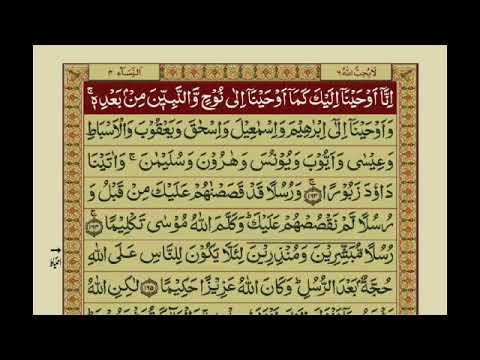 لَا يُحِبُّ اللّٰهُ ٦ النِّسَآء ٤
اِنَّاۤ اَوْحَيْنَاۤ اِلَيْكَ كَمَاۤ اَوْحَيْنَاۤ اِلٰى نُوْحٍ وَّالنَّبِيّٖنَ مِنْۢ بَعْدِهٖ ۚ
وَ اَوْحَيْنَاۤ اِلٰۤى اِبْرٰهِيْمَ وَاِسْمٰعِيْلَ وَاِسْحٰقَ وَيَعْقُوْبَ وَالْاَسْبَاطِ
وَعِيْسٰى وَاَيُّوْبَ وَيُوْنُسَ وَهٰرُوْنَ وَسُلَيْمٰنَ ۚ وَاٰتَيْنَا
دَاوٗدَ زَبُوْرًا ۚ ﴿١٦٣﴾ وَرُسُلًا قَدْ قَصَصْنٰهُمْ عَلَيْكَ مِنْ قَبْلُ وَ
رُسُلًا لَّمْ نَقْصُصْهُمْ عَلَيْكَ ؕ وَكَلَّمَ اللّٰهُ مُوْسٰى تَكْلِيْمًا ۚ ﴿١٦٤﴾
رُسُلًا مُّبَشِّرِيْنَ وَمُنْذِرِيْنَ لِئَلَّا يَكُوْنَ لِلنَّاسِ عَلَى اللّٰهِ
حُجَّةٌۢ بَعْدَ الرُّسُلِ ؕ وَكَانَ اللّٰهُ عَزِيْزًا حَكِيْمًا ﴿١٦٥﴾ لٰكِنِ اللّٰهُ